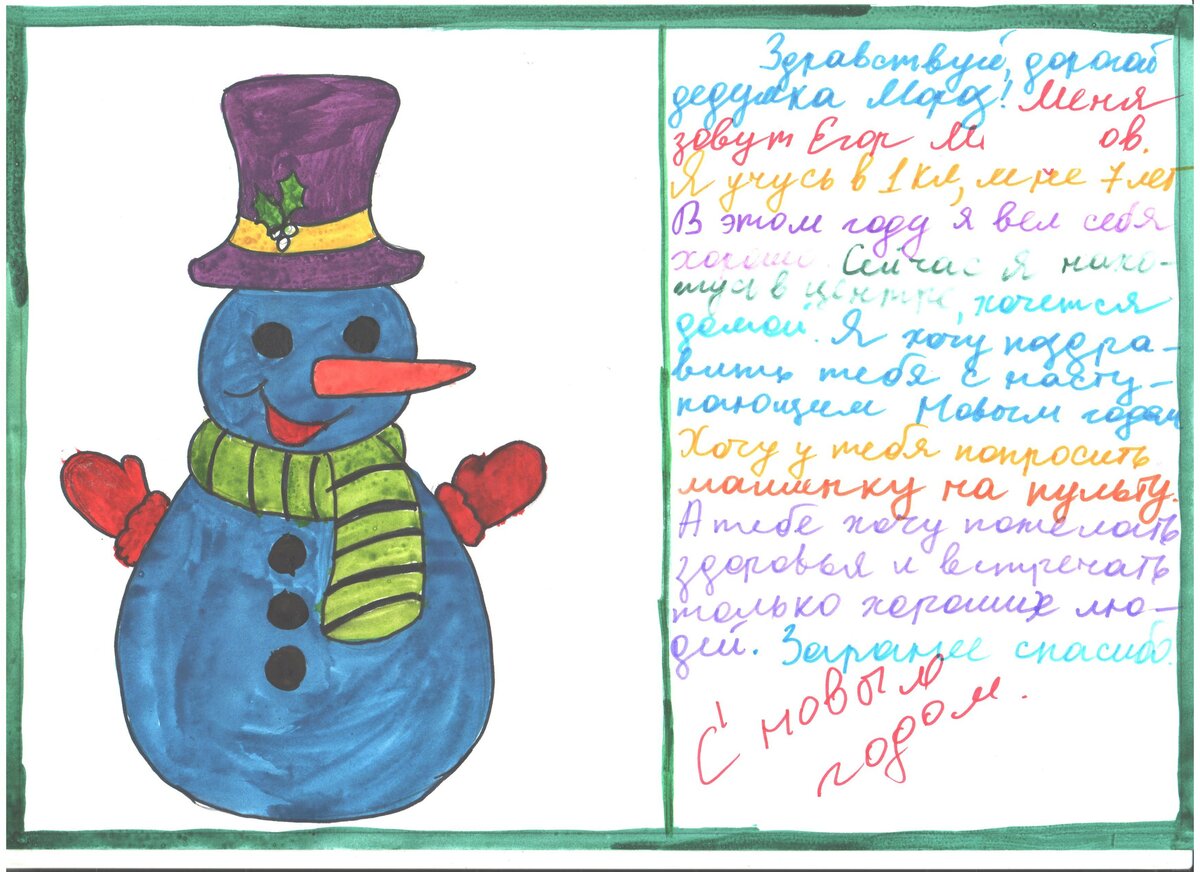 Здравствуй, дорогой
дедушка Мороз! Меня
зовут Егор М ов.
Я учусь в 1 кл, мне 7 лет
В этом году я вел себя
хорошо. Сейчас я нахо-
жусь в центре, хочется
домой. Я хочу поздра-
вить тебя с насту-
пающим Новым годом
Хочу у тебя попросить
машинку на пульту.
А тебе хочу пожелать
здоровья и встречать
только хороших лю-
дей. Заранее спасибо.
С новым
годом.